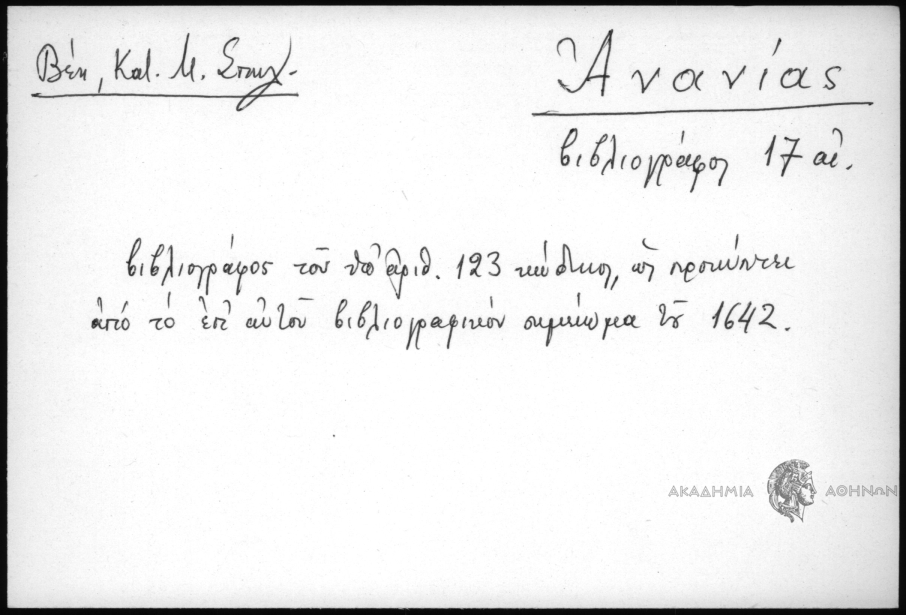 Βέη, Κατ. Μ. Σπηλ.
Ἀνανίας
βιβλιογράφος 17 αἰ.
βιβλιογράφος τοῦ ὑπ' ἀριθ. 123 κώδικος, ὡς προκύπτει
ἀπό τό ἐπ' αὐτοῦ βιβλιογραφικόν σημείωμα τοῦ 1642.
ΑΚΑΔΗΜΙΑ ΑΘΗΝΩΝ